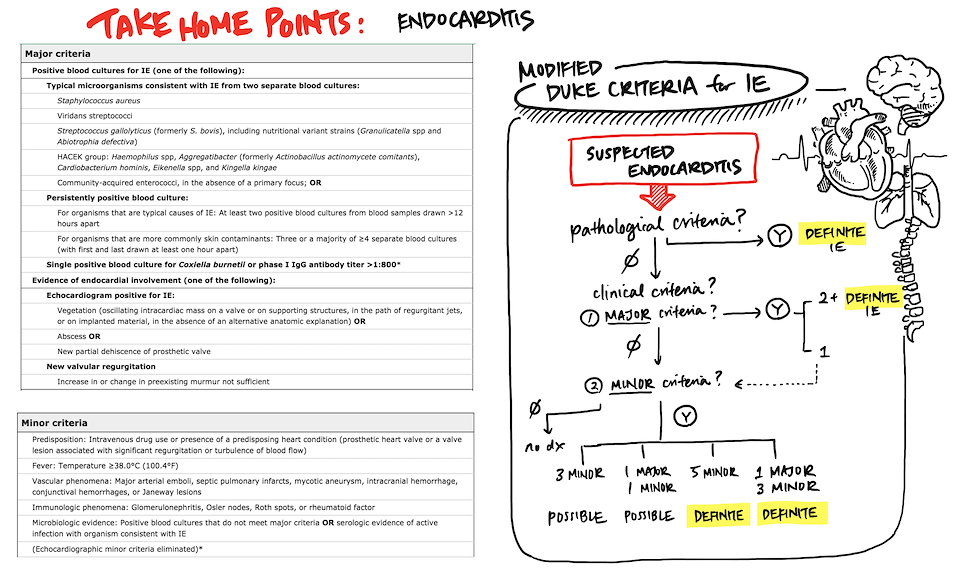 TAKE HOME POINTS: ENDOCARDITIS
Major criteria
Positive blood cultures for IE (one of the following):
Typical microorganisms consistent with IE from two separate blood cultures:
Staphylococcus aureus
Viridans streptococci
Streptococcus gallolyticus (formerly S. bovis), including nutritional variant strains (Granulicatella spp and
Abiotrophia defectiva)
HACEK group: Haemophilus spp, Aggregatibacter (formerly Actinobacillus actinomycete comitants),
Cardiobacterium hominis, Eikenella spp, and Kingella kingae
Community-acquired enterococci, in the absence of a primary focus; OR
Persistently positive blood culture:
For organisms that are typical causes of IE: At least two positive blood cultures from blood samples drawn >12
hours apart
For organisms that are more commonly skin contaminants: Three or a majority of ≥4 separate blood cultures
(with first and last drawn at least one hour apart)
Single positive blood culture for Coxiella burnetii or phase I IgG antibody titer >1:800*
Evidence of endocardial involvement (one of the following):
Echocardiogram positive for IE:
Vegetation (oscillating intracardiac mass on a valve or on supporting structures, in the path of regurgitant jets,
or on implanted material, in the absence of an alternative anatomic explanation) OR
Abscess OR
New partial dehiscence of prosthetic valve
New valvular regurgitation
Increase in or change in preexisting murmur not sufficient
Minor criteria
Predisposition: Intravenous drug use or presence of a predisposing heart condition (prosthetic heart valve or a valve
lesion associated with significant regurgitation or turbulence of blood flow)
Fever: Temperature ≥38.0°C (100.4°F)
Vascular phenomena: Major arterial emboli, septic pulmonary infarcts, mycotic aneurysm, intracranial hemorrhage,
conjunctival hemorrhages, or Janeway lesions
Immunologic phenomena: Glomerulonephritis, Osler nodes, Roth spots, or rheumatoid factor
Microbiologic evidence: Positive blood cultures that do not meet major criteria OR serologic evidence of active
infection with organism consistent with IE
(Echocardiographic minor criteria eliminated)*
MODIFIED
DUKE CRITERIA for IE
SUSPECTED
ENDOCARDITIS
pathological criteria?
Y DEFINITE
IE
Ø
clinical criteria?
① MAJOR criteria?
Y
2+ DEFINITE
IE
1
Ø
② MINOR criteria?
Ø
Y
no dx
3 MINOR
1 MAJOR
1 MINOR
5 MINOR
1 MAJOR
3 MINOR
POSSIBLE POSSIBLE DEFINITE DEFINITE